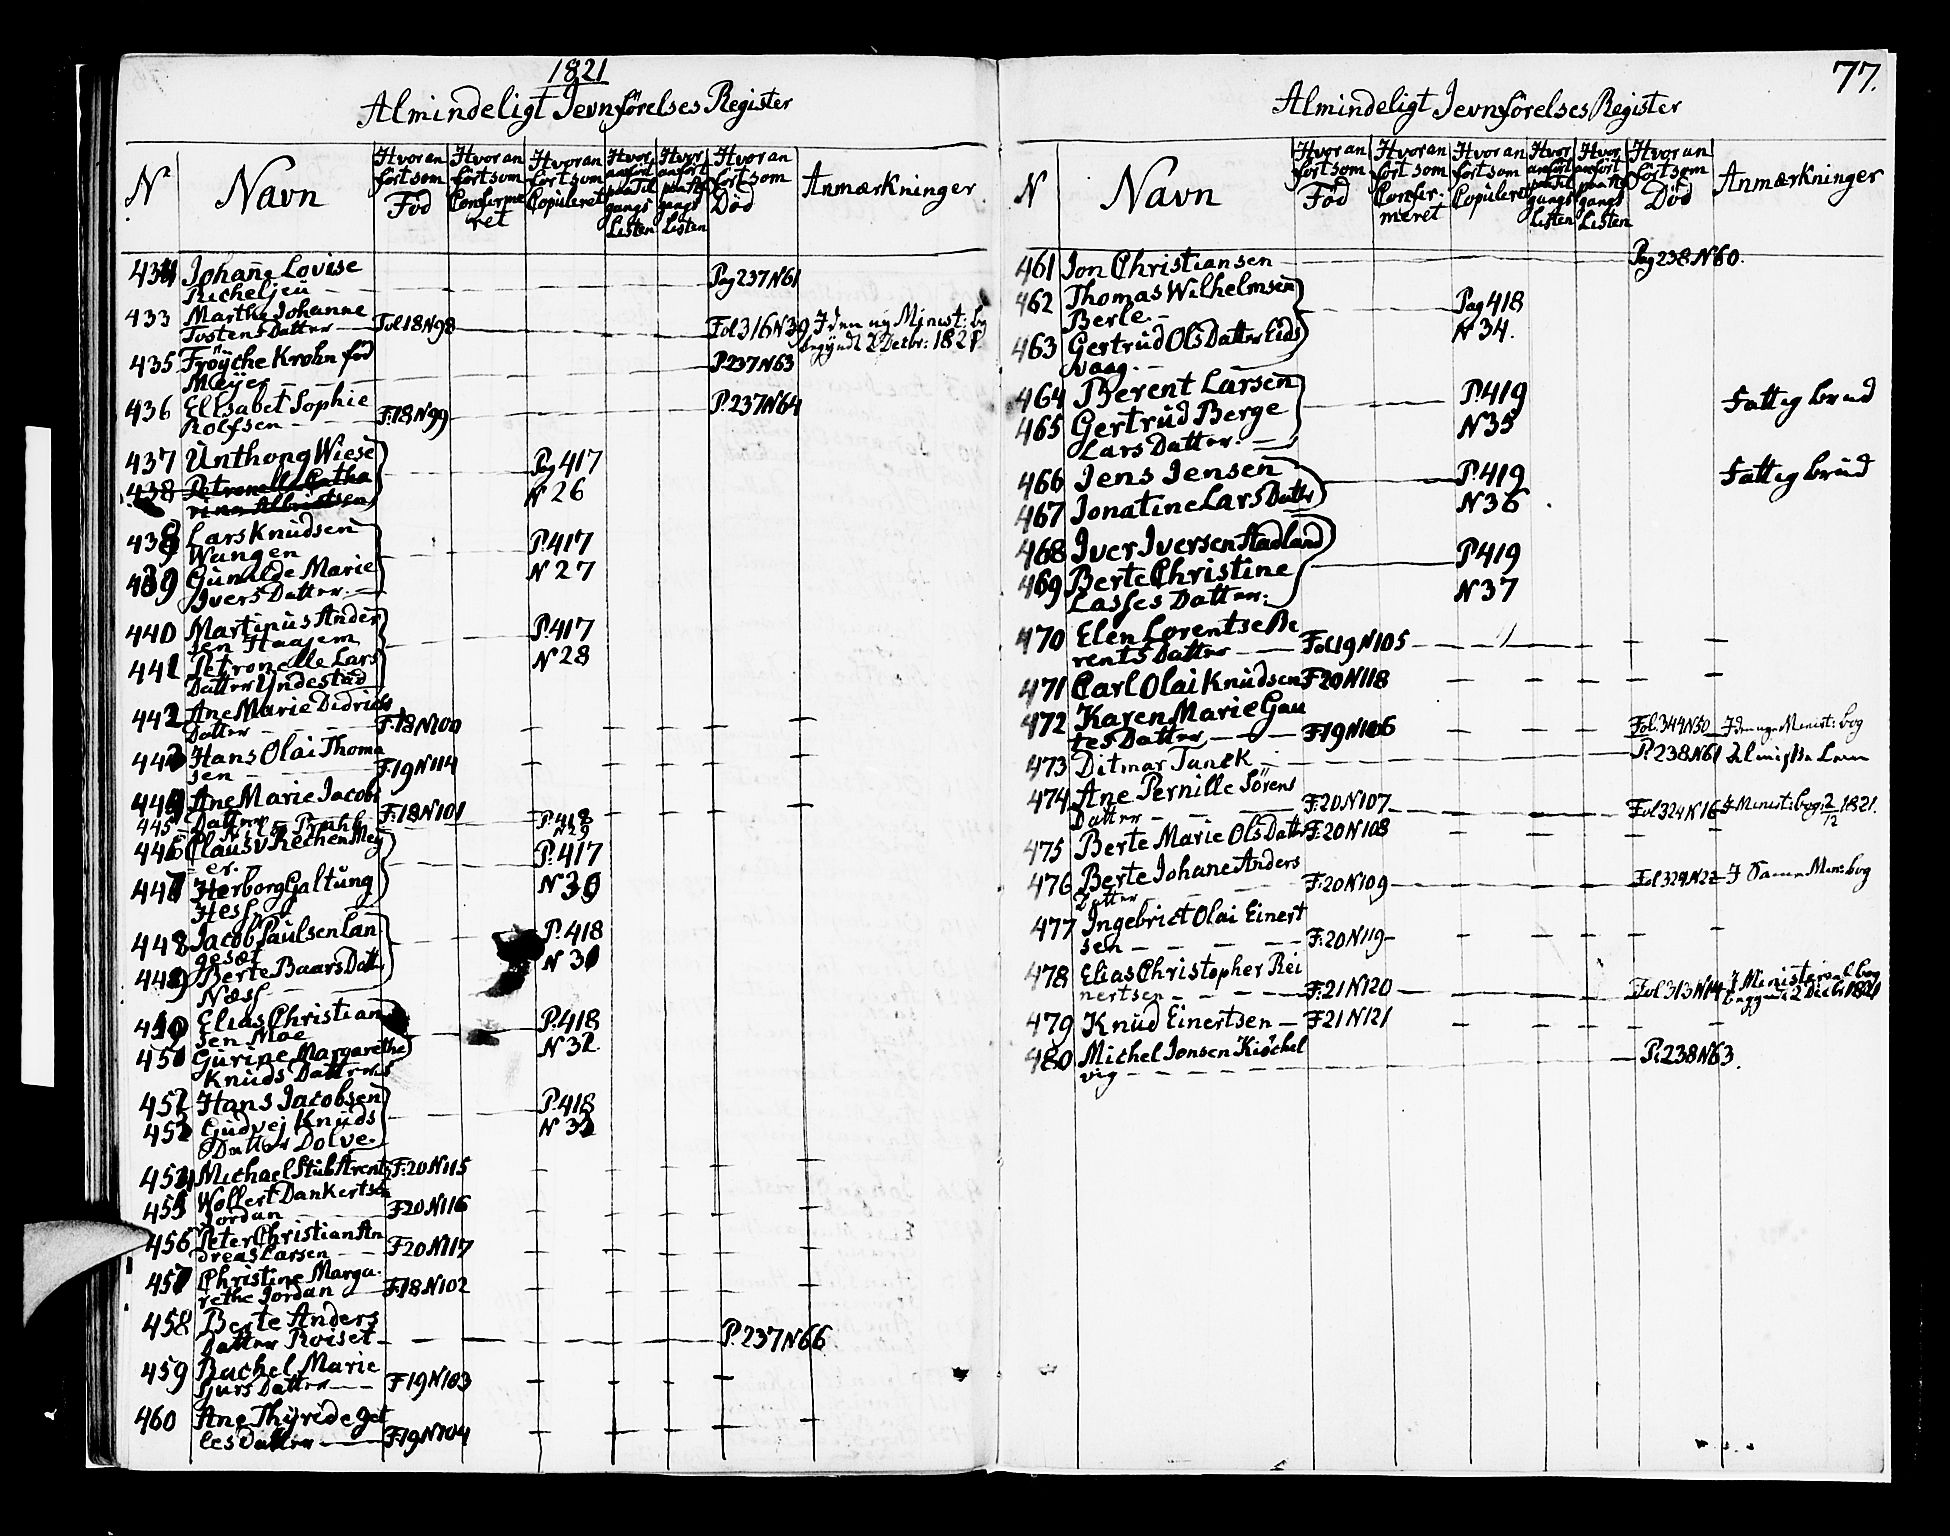 1821
Almindeligt Jevnförelses Register
N
Navn
Hvor an
fört som
Föd
Hvor an
fört som
Confirme
ret
Hvor an
fört som
Copuleret
Hvor
anfört
paa Til
gangs
Listen
Hvor
anfört
paa Af
gangs
Listen
Hvor an
fört som
Död
Anmærkninger
434 Johane Lovise
Richeljeu Pag 237 N 61
433 Marthe Johanne
Tostens Datter Fol 18 N 98 Fol 316 N 39 I den ny Minist: bog
begyndt 2 Decbr: 1821
435 Fröyche Krohn föd
Meyer P. 237 N 63
436 Elisabet Sophie
Rolfsen F. 18 N 99 P. 237 N 64
437 Unthong Wiese Pag 417
438 Petronelle Catha
rina Albrictsen N 26
438 Lars Knudsen
Wangen P. 417
439 Gunilde Marie
Ivers Datter N 27
440 Martinus Ander
sen Haajem P. 417
441 Petronelle Lars
Datter Undestad N 28
442 Ane Marie Didrichs
Datter F. 18 N 100
443 Hans Olai Thoma
sen F. 19 N 114
444 Ane Marie Jacobs
Datter F. 18 N 101
445 P. 418
N 29
446 Claus v Rechen Mey
er. P. 417
447 Herborg Galtung
Hess N 30
448 Jacob Paulsen Lan
gesæt P. 418
449 Berte Baars Datt
Næss N 31
450 Elias Christian
sen Moe P. 418
451 Gurine Margarethe
Knuds Datter N 32
452 Hans Jacobsen P. 418
453 Gudvej Knuds
Datter Dolve N 33
454 Michael Stub Arentz F. 20 N 115
455 Wollert Dankertsen
Jordan F. 20 N 116
456 Peter Christian An
dreas Larsen F. 20 N 117
457 Christine Marga
rethe Jordan F. 18 N 102
458 Berte Anders
Datter Roiset P. 237 N 66
459 Rachel Marie
Sjurs Datter F 19 N 103
460 Ane Thyride
les Datter F. 19 N 104
77.
Almindeligt Jevnförelses Register
N
Navn
Hvor an
fört som
Föd
Hvor an
fört som
Confir-
meret
Hvor an
fört som
Copuleret
Hvor
anfört
paa Til
gangs
Listen
Hvor
anfört
paa Af
gangs
Listen
Hvor an
fört som
Död
Anmærkninger
461 Jon Christiansen Pag 238 N 60.
462 Thomas Wilhelmsen
Berle Pag 418
463 Gertrud Ols Datter Eids
vaag. N 34.
464 Berent Larsen P. 419 Fattig brud
465 Gertrud Berge
Lars Datter. N 35
466 Jens Jensen P. 419 Fattig brud
467 Jonatine Lars Datter N 36
468 Iver Iversen Stadland P. 419
469 Berte Christine
Lasses Datter. N 37
470 Elen Lorentse Be
rents Datter Fol 19 N 105
471 Carl Olai Knudsen F 20 N 118
472 Karen Marie Gau
tes Datter F. 19 N 106 Fol. 344 N 30 I den nye Minist: bog
473 Ditmar Tunck P. 238 N 61
474 Ane Pernille Sörens
Datter F. 20 N 107 Fol 324 N 16 I Minist: bog 2/12 1821.
475 Berte Marie Ols Datter F. 20 N 108
476 Berte Johane Anders
Datter F. 20 N 109 Fol 324 N 22 I Samme Min: bog
477 Ingebrict Olai Einert
sen F. 20 N 119
478 Elias Christopher Rei
nertsen F. 21 N 120 Fol 313 N 14 I Ministerial bog
begyndt 2 Decbr 1821
479 Knud Einertsen F 21 N 121
480 Michel Jonsen Kiöchel
vig P. 238 N 63.